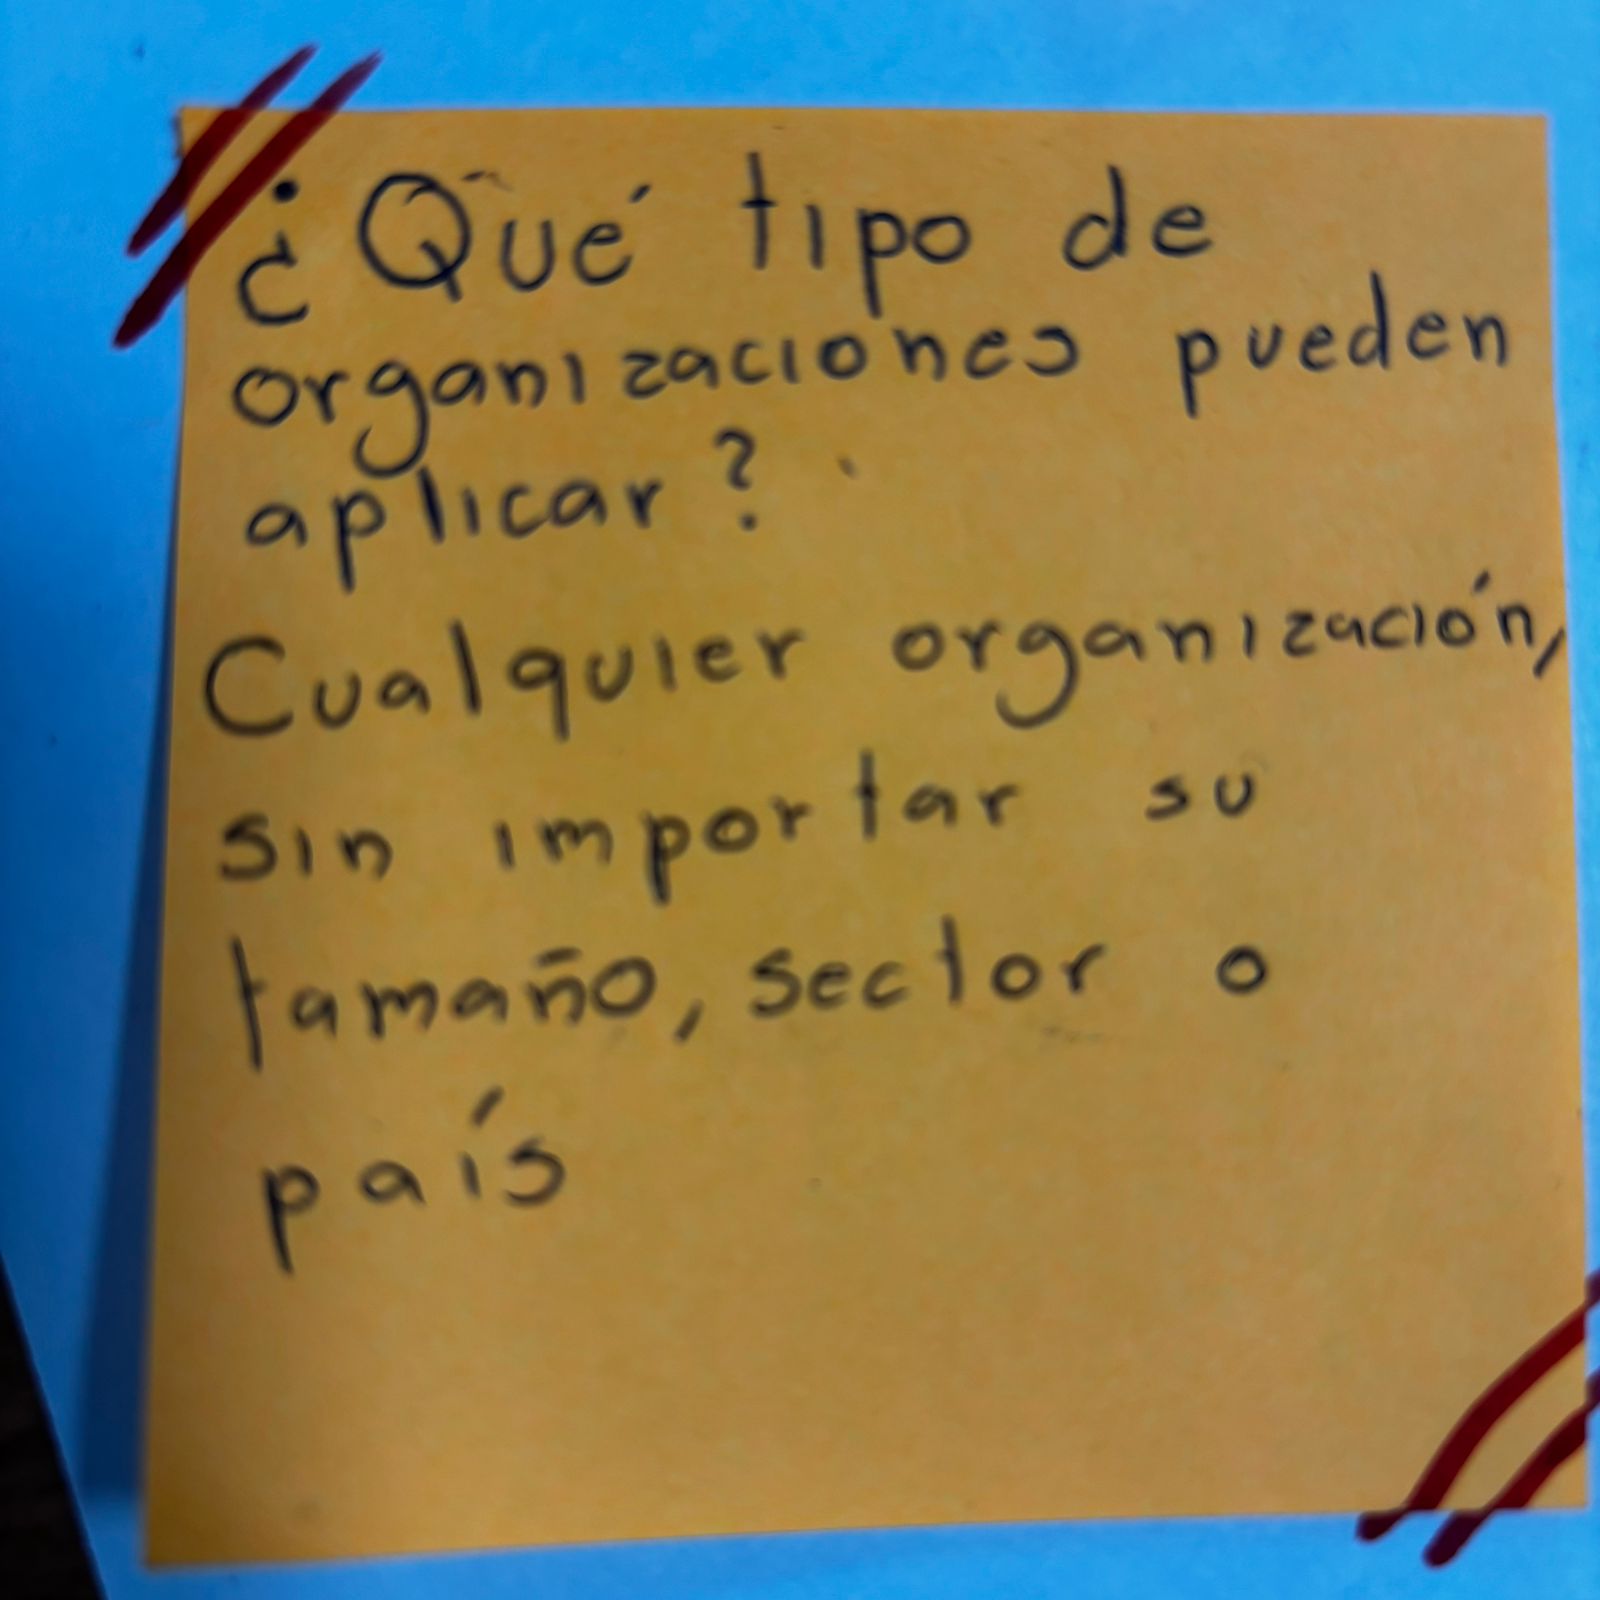 ¿Qué tipo de
organizaciones pueden
aplicar?
Cualquier organización,
sin importar su
tamaño, sector o
país